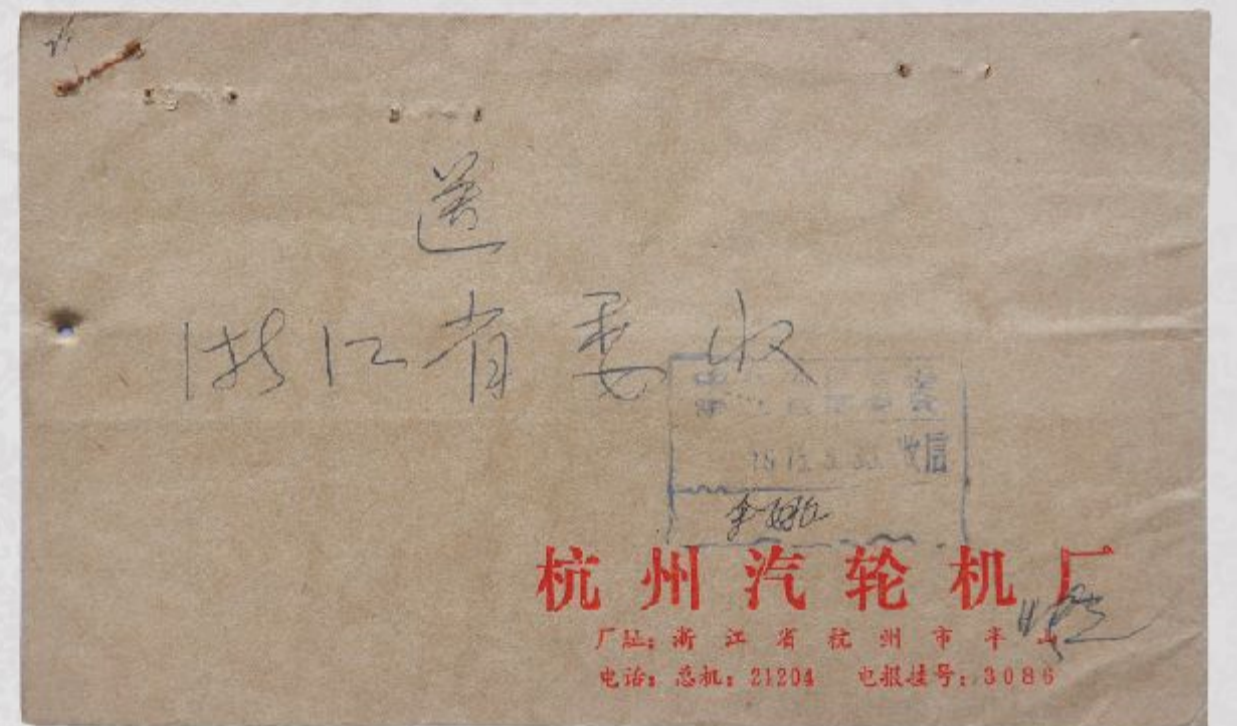 送
浙江省委收
收信
杭州汽轮机厂
厂址：浙江省杭州市半山
电话：总机：21204 电报挂号：3086